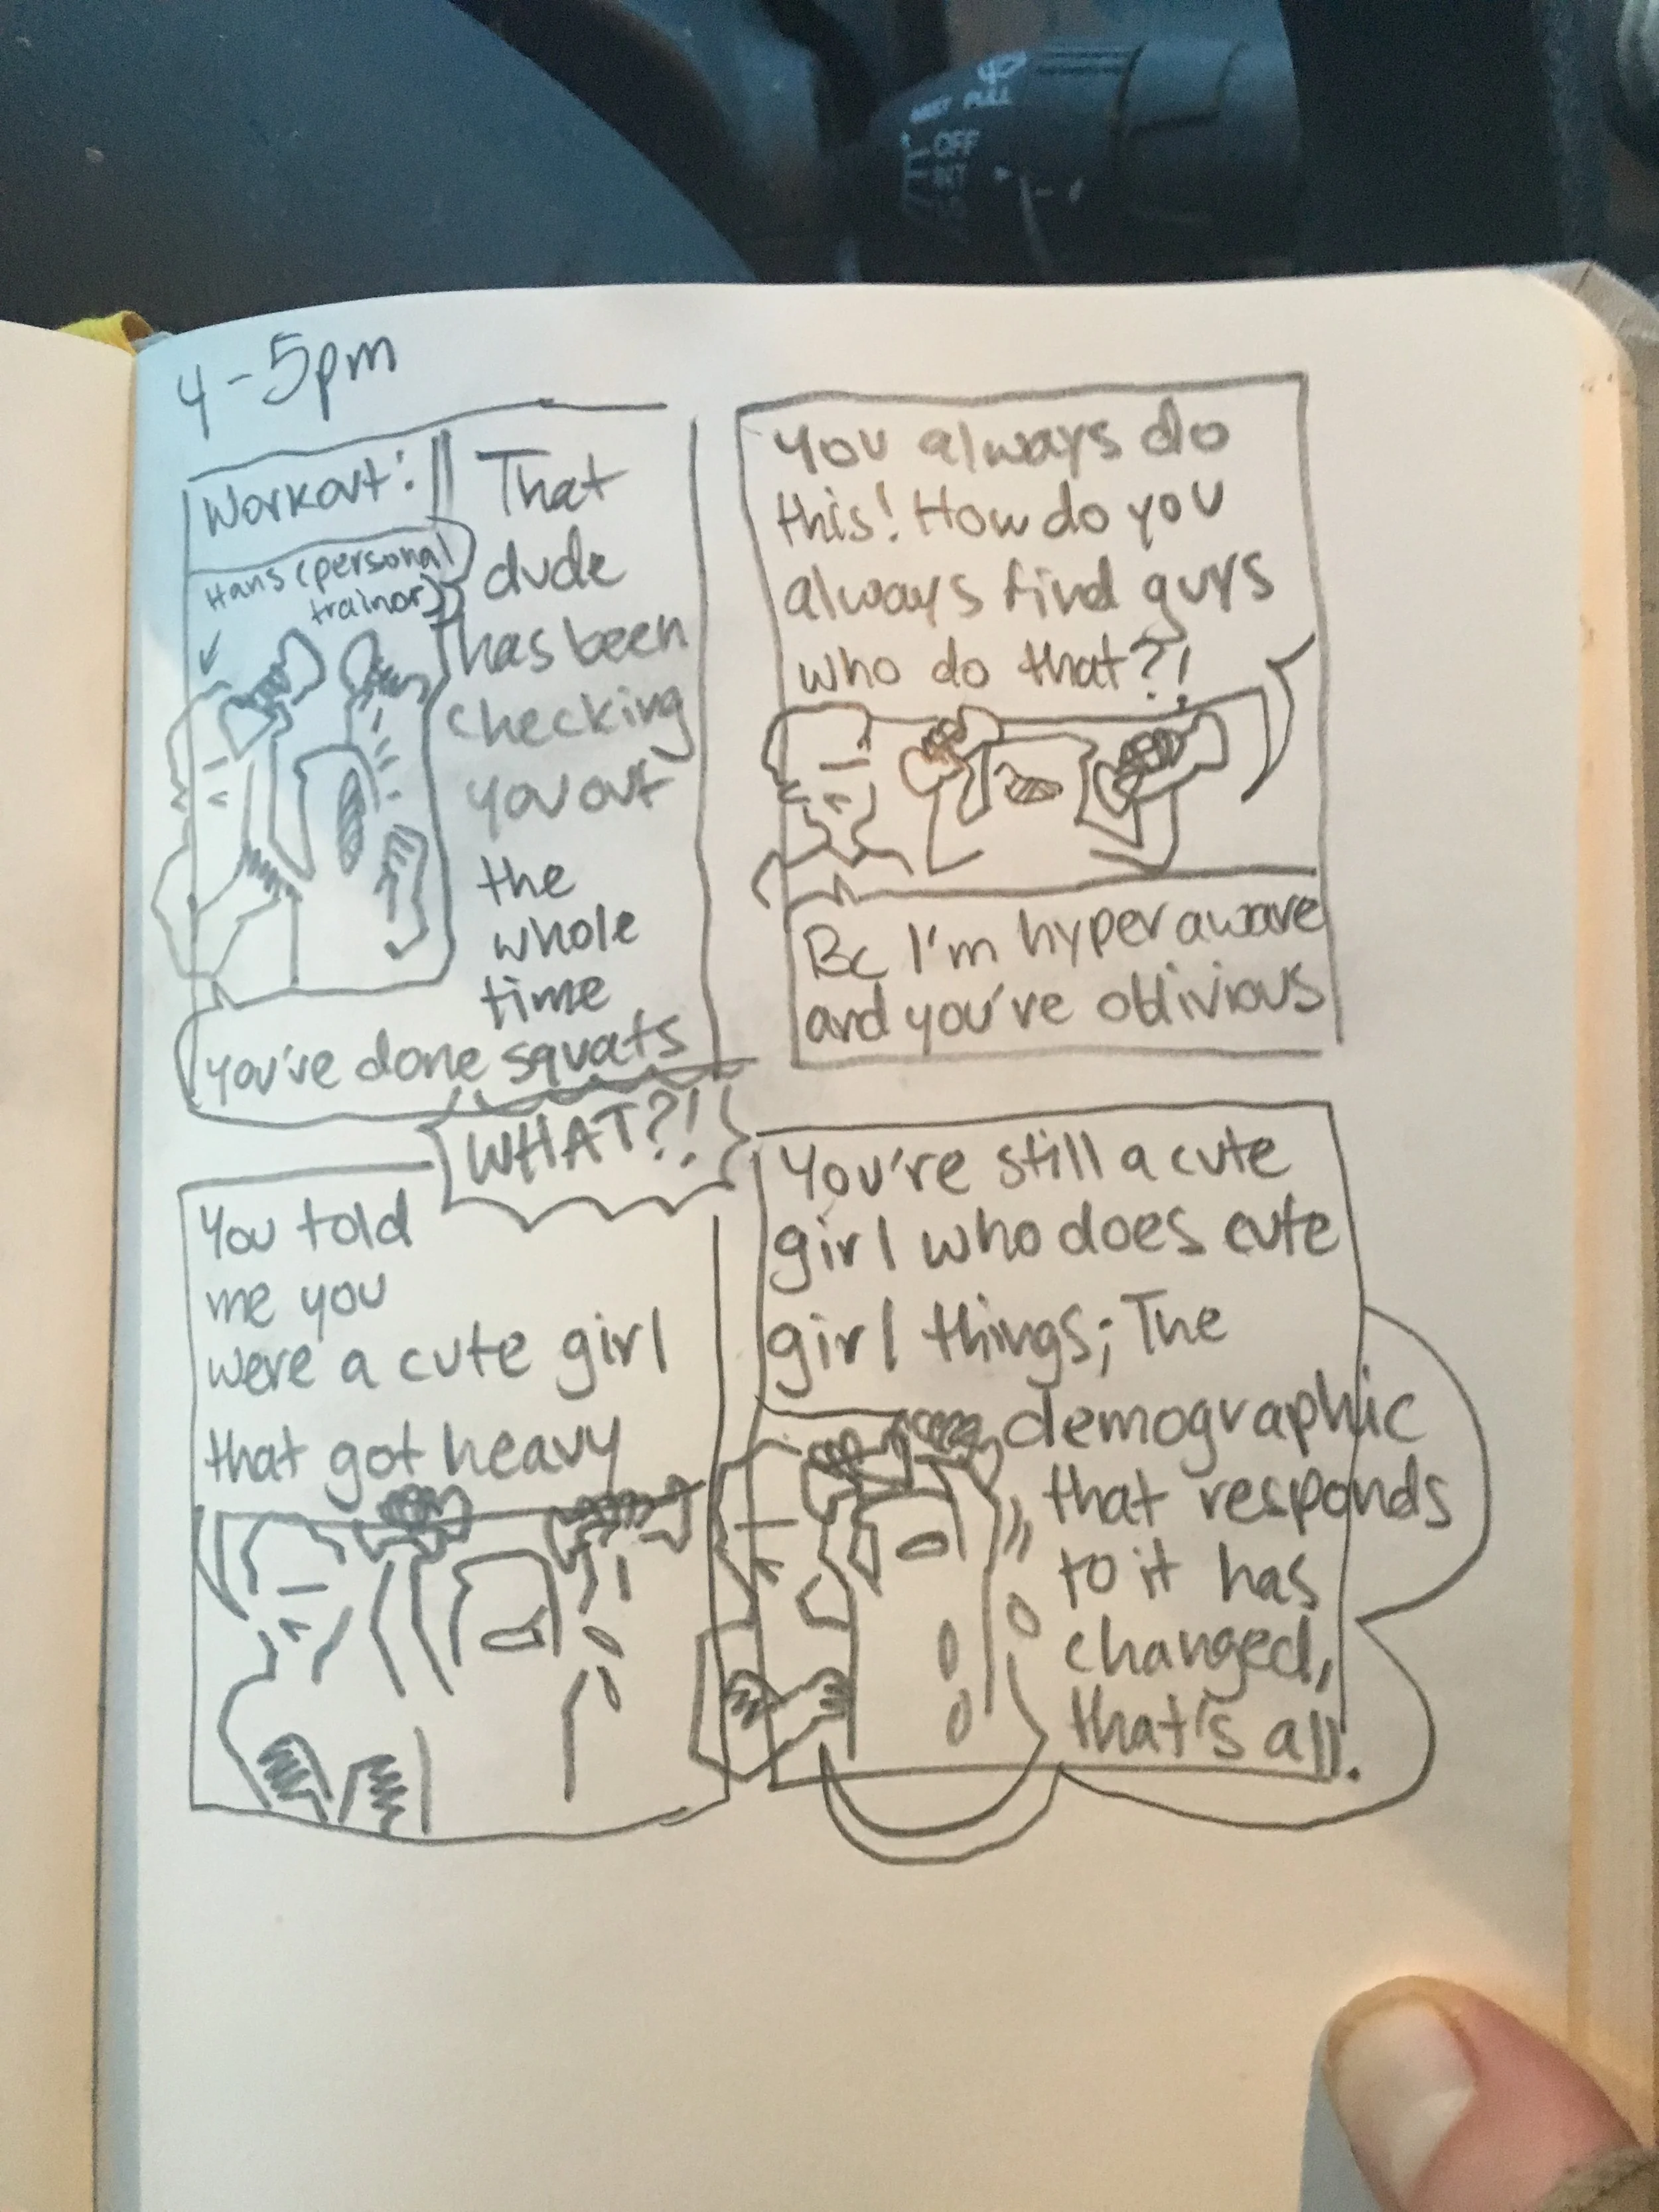 MIST PULL
OFF
INT
4-5pm
Workout:
Hans (personal
trainor)
That
dude
has been
checking
you out
the
whole
time
you've done squats
You always do
this! How do you
always find guys
who do that?!
Bc I'm hyper aware
and you've oblivious
WHAT?!
You told
me you
were a cute girl
that got heavy
You're still a cute
girl who does cute
girl things; The
demographic
that responds
to it has
changed,
that's all.